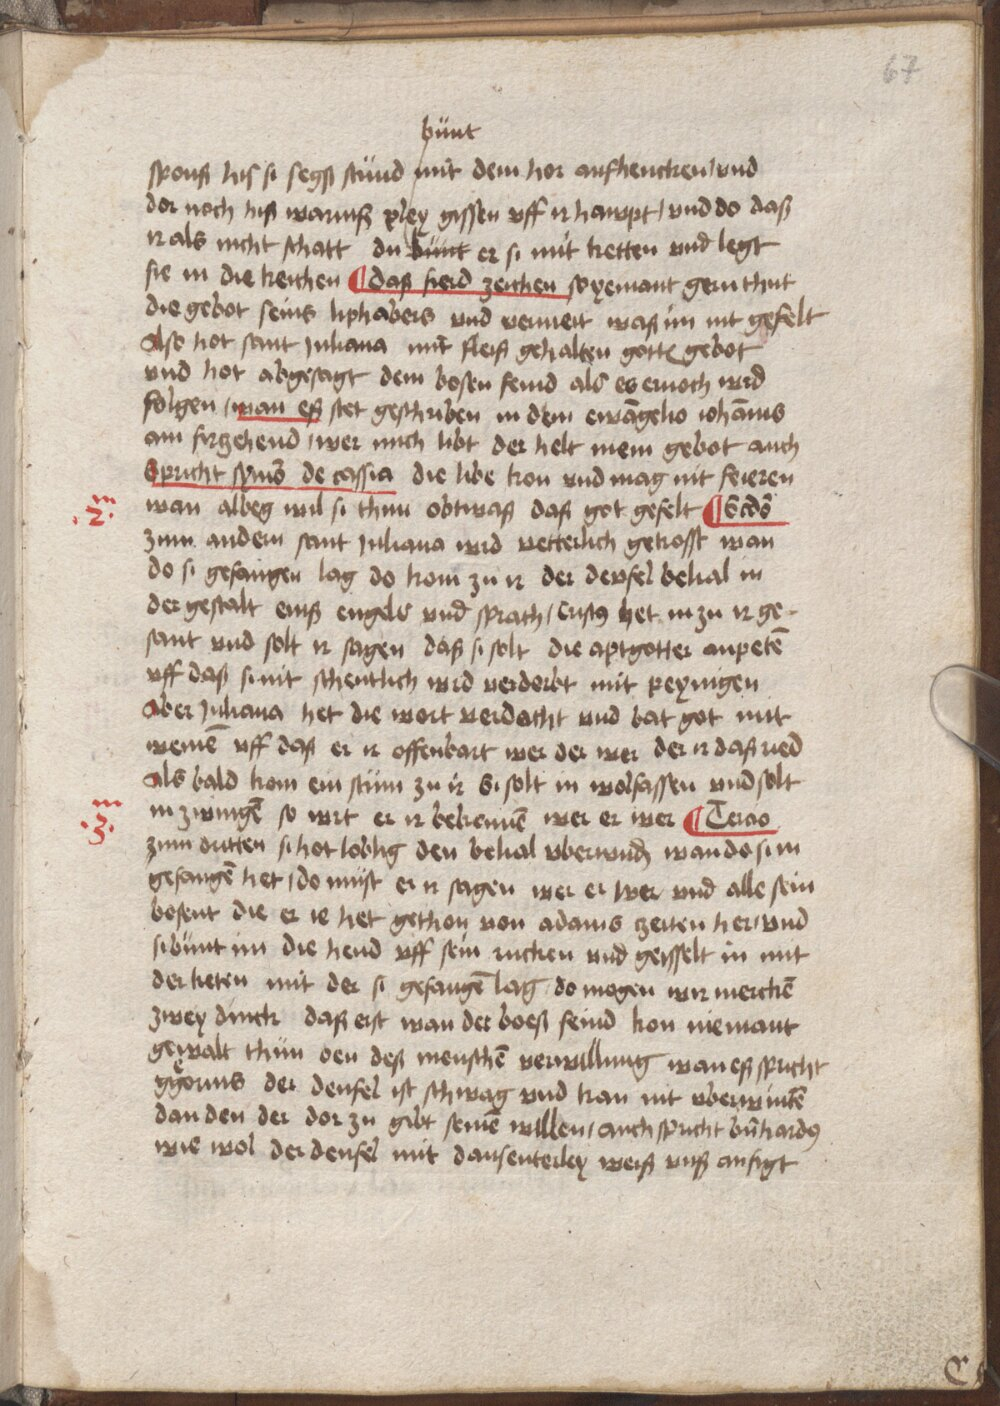 67
bünt
sponß his si segß stünd mit dem hor aufhencken / und
dor noch hiß warmß pley gissen uff ir hawpt / und do daß
ir als nicht schatt du bünt er si mit ketten und legt
sie in die keichen ¶ daß fierd zeichen so yemant gern thut
die gebot seins liphabers und vermeit waß im nit gefelt
Also hot sant Juliana mit fleiß gehalten gottz gebot
und hot abgesagt dem bosen feind als es ernoch wird
folgen / wan eß stet geschriben in dem ewāgelio iohānis
am firzehend / wer mich libt der helt mein gebot auch
Spricht symō de cassia die libe kon und mag nit feieren
wan albeg wil si thun obtwaß daß got gefelt ¶ Scdō
.2.m
zum andern sant Juliana wird vetterlich getrosst wan
do si gefangen lag do kom zu ir der deufel belial in
der gestalt einß engels und sprach / cristus het in zu ir ge-
sant und solt ir sagen daß si solt die aptgotter anpetē
uff daß si nit schentlich wird verderbt mit peynigen
Aber Juliana het die wort verdocht und bat got mit
weinē uff daß er ir offenbart wer der wer der ir daß ried
Als bald kom ein stim zu ir Si solt in wol fassen und solt
in zwingē so wirt er ir bekennē wer er wer ¶ Tercio
.3.m
zum dritten si hot loblig den belial uberwundē wan do si in
gefangē het / do müst er ir sagen wer er wer und alle sein
bosheit die er ie het gethon von adams zeiten her / und
si bünt im die hend uff sein rucken und geisselt in mit
der keten mit der si gefangē lag do mogen wir merckē
zwey dinck daß erst wan der boeß feind kon niemant
gewalt thün oen deß menschē verwillung wan eß spricht
gregorius der deufel ist schwag und kan nit uberwintē
dan den der dor zu gibt seinē willen / auch spricht bn̄hardus
wie wol der deufel mit dausenterley weiß unß anfigt